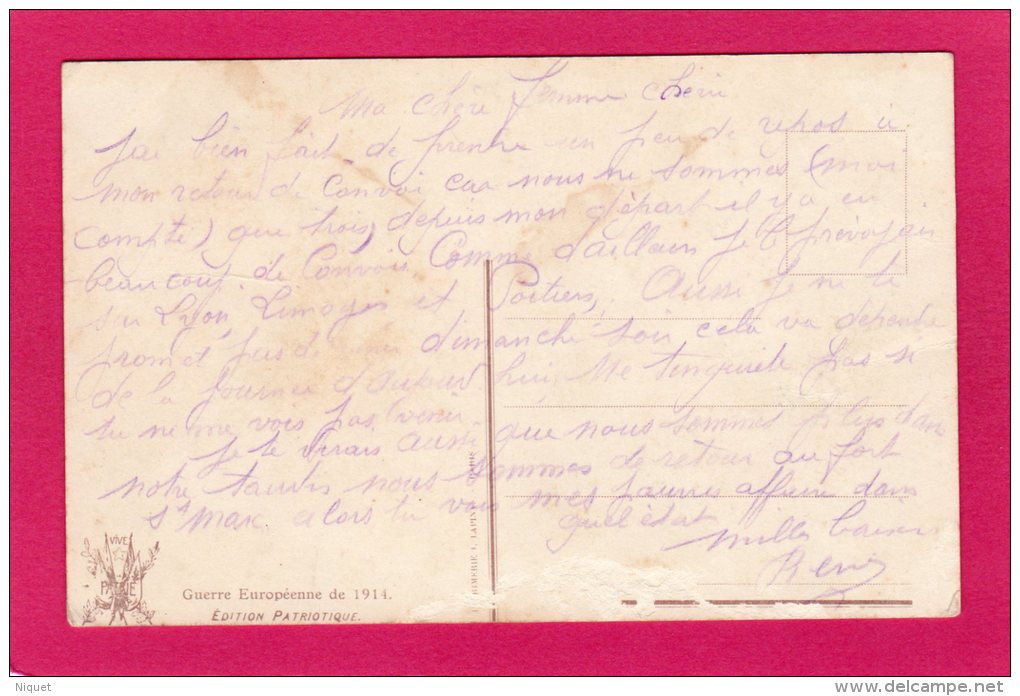 Ma chère femme chérie
J'ai bien fait de prendre un peu de repos à
mon retour de Convoi car nous ne sommes (moi
compté) que trois, depuis mon départ il y a eu
beaucoup de Convois Comme d'ailleurs je le prévoyais
sur Lyon, Limoges et Poitiers, Aussi je ne te
promet pas dimanche soir cela va dépendre
de la journée d'aujourd'hui, Ne t'enquiète pas si
tu ne me vois pas venir
Je te dirais aussi que nous sommes plus dans
notre taudis nous sommes de retour au fort
St Max alors tu vois mes pauvres affaire dans
quel état
mille baisers
René
VIVE
PATRIE
Guerre Européenne de 1914.
ÉDITION PATRIOTIQUE.
IMPRIMERIE L. LAPINA PARIS
Niquet
delcampe.net